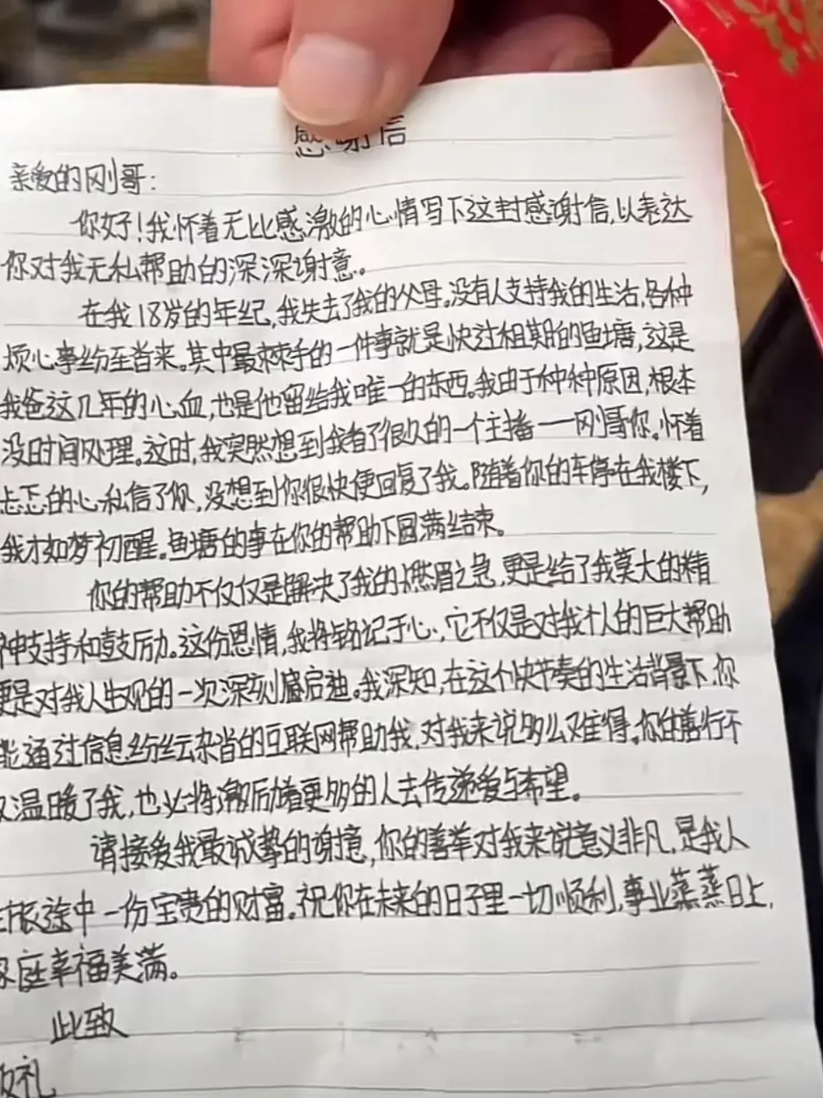 感谢信
亲爱的刚哥：
你好！我怀着无比感激的心情写下这封感谢信，以表达
你对我无私帮助的深深谢意。
在我18岁的年纪，我失去了我的父母。没有人支持我的生活，各种
烦心事纷至沓来。其中最棘手的一件事就是快过租期的鱼塘，这是
我爸这几年的心血，也是他留给我唯一的东西。我由于种种原因，根本
没时间处理。这时，我突然想到我看了很久的一个主播——刚哥你。怀着
忐忑的心私信了你，没想到你很快便回复了我。随着你的车停在我楼下，
我才如梦初醒。鱼塘的事在你的帮助下圆满结束。
你的帮助不仅仅是解决了我的燃眉之急，更是给了我莫大的精
神支持和鼓励。这份恩情，我将铭记于心，它不仅是对我个人的巨大帮助
更是对我人生观的一次深刻启迪。我深知，在这个快节奏的生活背景下，你
能通过信息纷纭杂沓的互联网帮助我，对我来说多么难得。你的善行不
仅温暖了我，也必将激励着更多的人去传递爱与希望。
请接受我最诚挚的谢意，你的善举对我来说意义非凡，是我人
生旅途中一份宝贵的财富。祝你在未来的日子里一切顺利，事业蒸蒸日上，
家庭幸福美满。
此致
敬礼